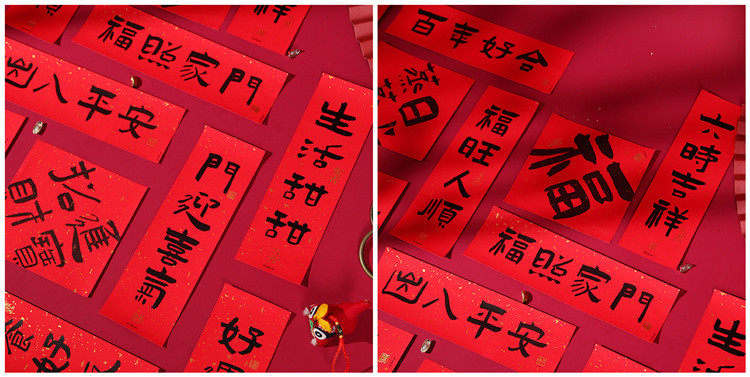 祥
福照家門
出入平安
生活甜甜
門迎喜氣
招進財寶
好
百年好合
蒸蒸日
福旺人順
福
六時吉祥
福照家門
出入平安